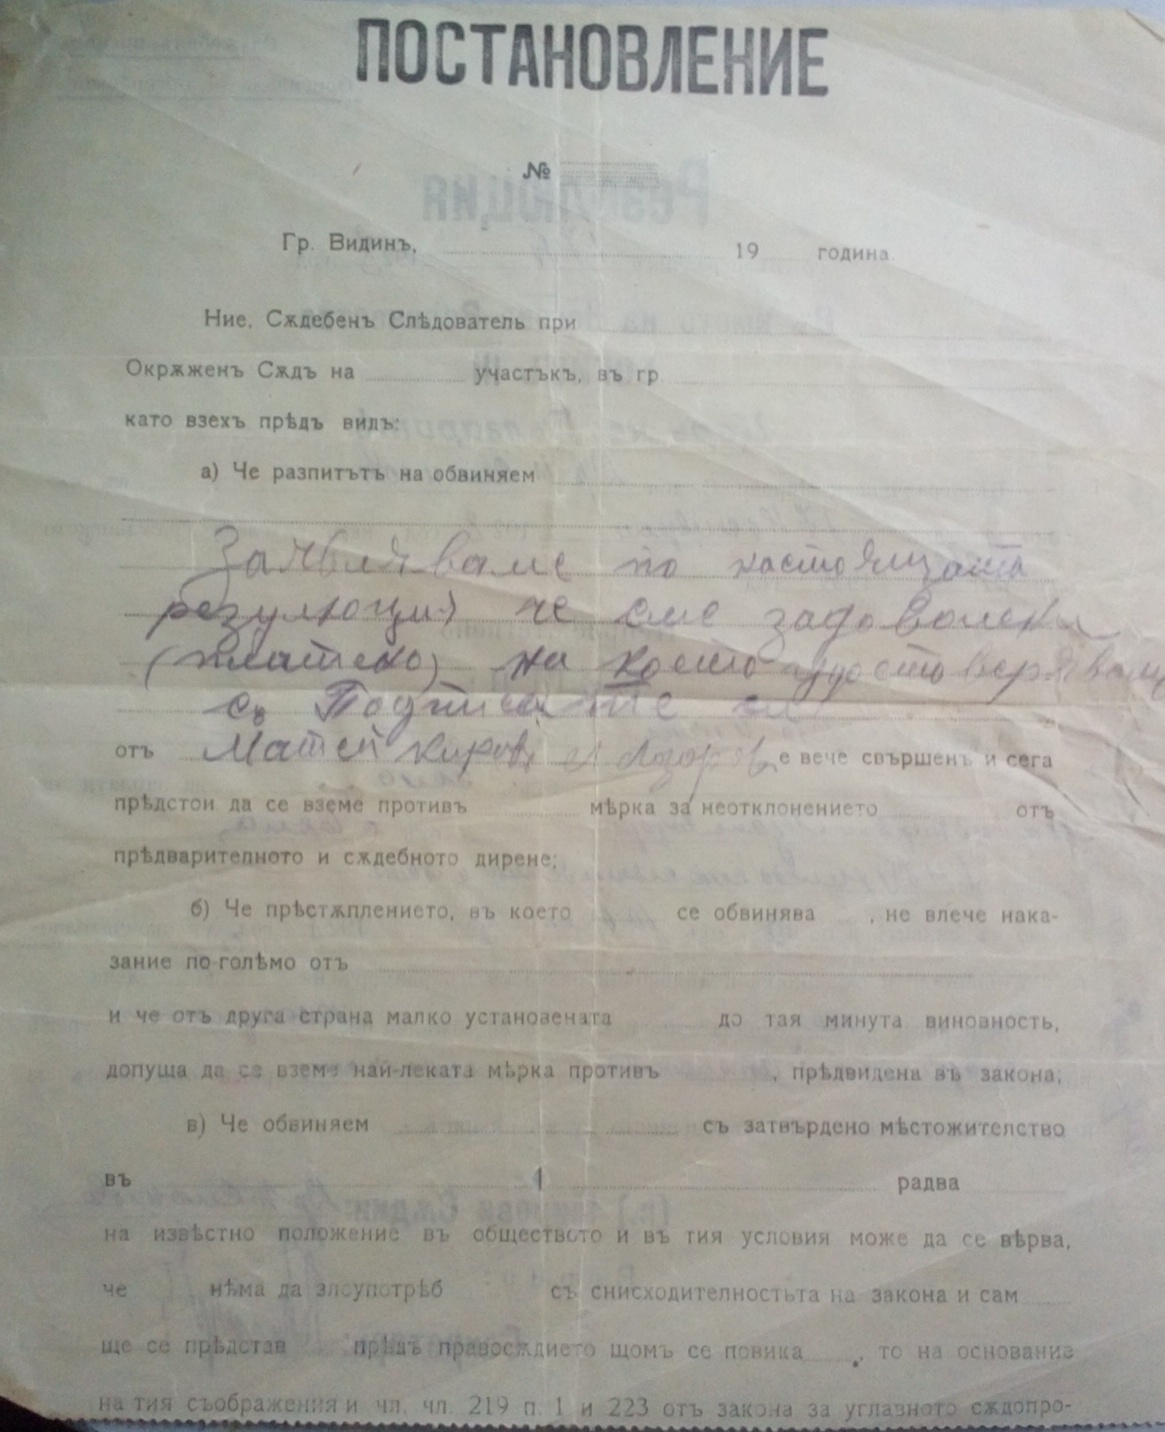 ПОСТАНОВЛЕНИЕ
№
Гр. Видинъ, 19 година.
Ние, Сѫдебенъ Слѣдователь при
Окрѫженъ Сѫдъ на участъкъ, въ гр
като взехъ прѣдъ видъ:
а) Че разпитътъ на обвиняем
Заявляваме по настоящата
резулюция че сме задоволени
(платено) на което удостоверяваме
съ Подписите си
отъ Матей Киров, Лазоров, е вече свършенъ и сега
прѣдстои да се вземе противъ мѣрка за неотклонението отъ
прѣдварителното и сѫдебното дирене;
б) Че прѣстѫплението, въ което се обвинява , не влече нака-
зание по-голѣмо отъ
и че отъ друга страна малко установената до тая минута виновность,
допуща да се вземе най-леката мѣрка противъ , прѣдвидена въ закона;
в) Че обвиняем съ затвърдено мѣстожителство
въ радва
на извѣстно положение въ обществото и въ тия условия може да се вѣрва,
че нѣма да злоупотрѣб съ снисходителностьта на закона и сам
ще се прѣдстав прѣдъ правосѫдието щомъ се повика , то на основание
на тия съображения и чл. чл. 219 п. 1 и 223 отъ закона за углавното сѫдопро-